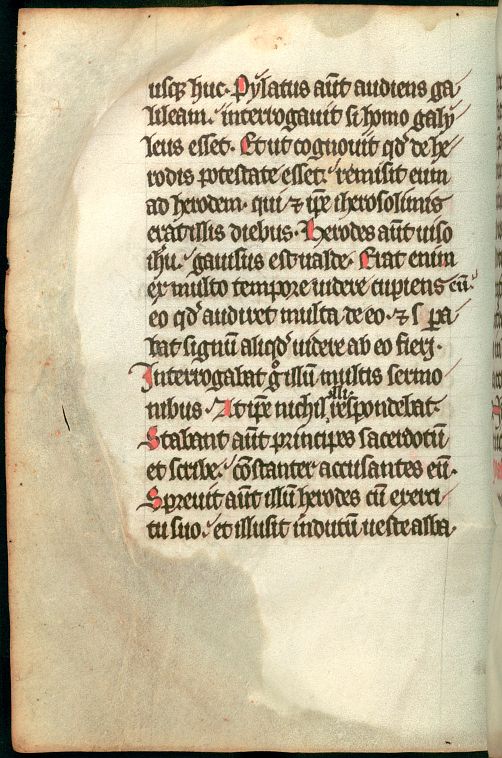 usq; huc. Pylatus aūt audiens ga/
lileam. interrogauit si homo galy/
leus esset. Et ut cognouit qd̄ de he/
rodis potestate esset. remisit eum
ad herodem. qui ⁊ ip̄e iherosolimis
erāt illis diebus. Herodes aūt uiso
ihū. gauisus est ualde. Erat enim
ex multo tempore uidere cupiens eū.
eo qd̄ audiret multa de eo. ⁊ s pa/
bat signū aliqd̄ uidere ab eo fierj.
Interrogabat gͦ illum multis sermo
nibus. At ip̄e nichil illi respondebat.
Stabant aūt principes sacerdotū
et scribe. cōstanter accusantes eū.
Spreuit aūt illū herodes cū exerci/
tu suo. et illusit indutū ueste alba.